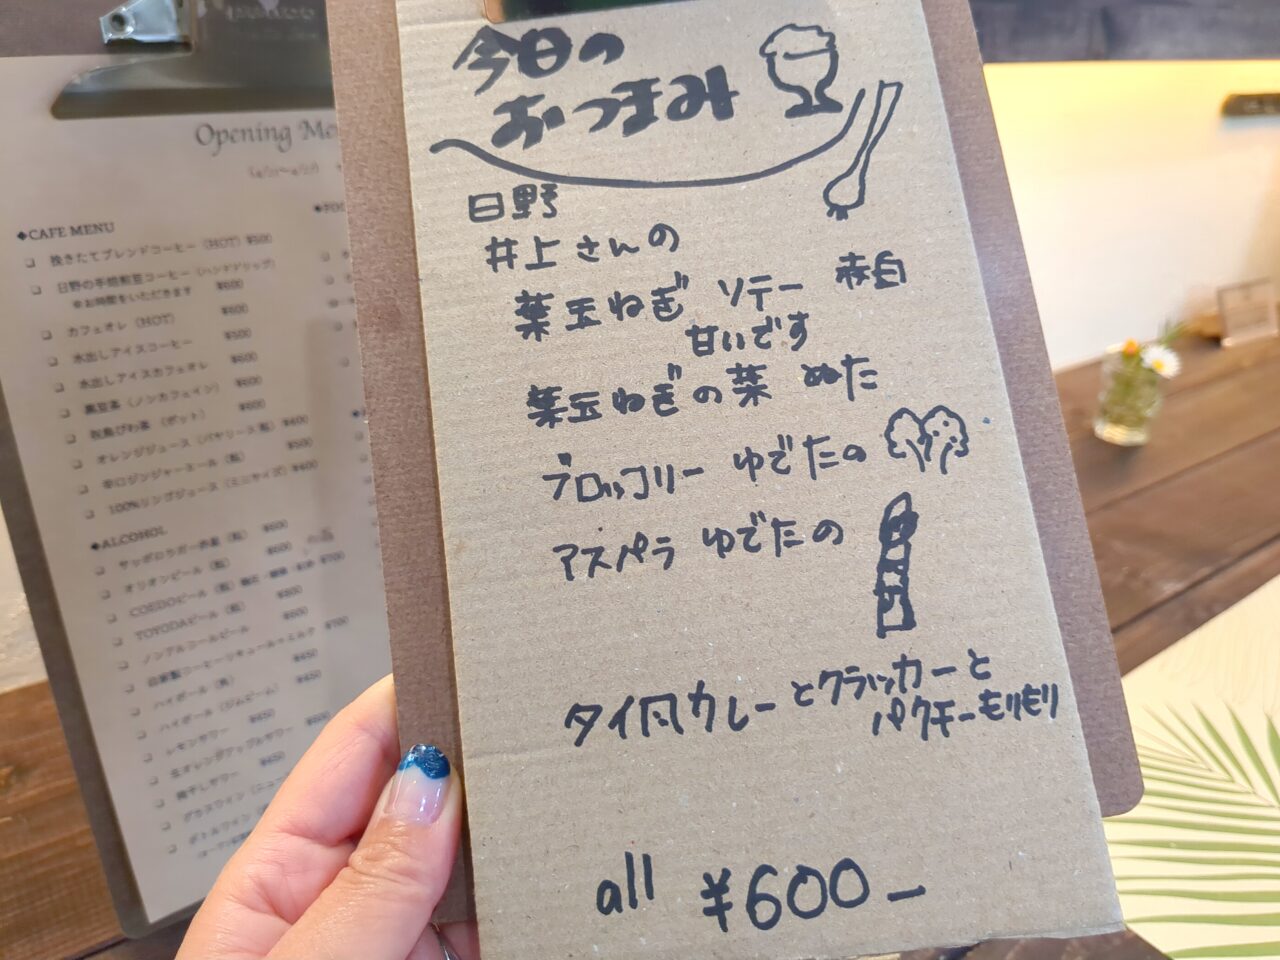 今日の
おつまみ
日野
井上さんの
葉玉ねぎ ソテー 赤白
甘いです
葉玉ねぎの葉 ぬた
ブロッコリー ゆでたの
アスパラ ゆでたの
タイ風カレーとクラッカーと
パクチーもりもり
all ¥600-
Opening Me
◆CAFE MENU
挽きたてブレンドコーヒー（HOT）¥500
日野の手焙煎豆コーヒー（ハンドドリップ）
※お時間をいただきます ¥600
カフェオレ（HOT） ¥600
水出しアイスコーヒー ¥500
水出しアイスカフェオレ ¥600
黒豆茶（ノンカフェイン） ¥600
祝島びわ茶（ポット） ¥600
オレンジジュース（バヤリース 瓶）¥400
辛口ジンジャーエール（瓶） ¥500
100%リンゴジュース（ミニサイズ）¥400
◆ALCOHOL
サッポロラガー赤星（瓶） ¥600
オリオンビール（瓶） ¥600
COEDOビール（瓶） ¥700
TOYODAビール（瓶） ¥800
ノンアルコールビール ¥600
自家製コーヒーリキュール＋ミルク ¥700
ハイボール（角） ¥450
ハイボール（ジムビーム） ¥450
レモンサワー ¥450
生オレンジアップルサワー ¥600
梅干しサワー ¥450